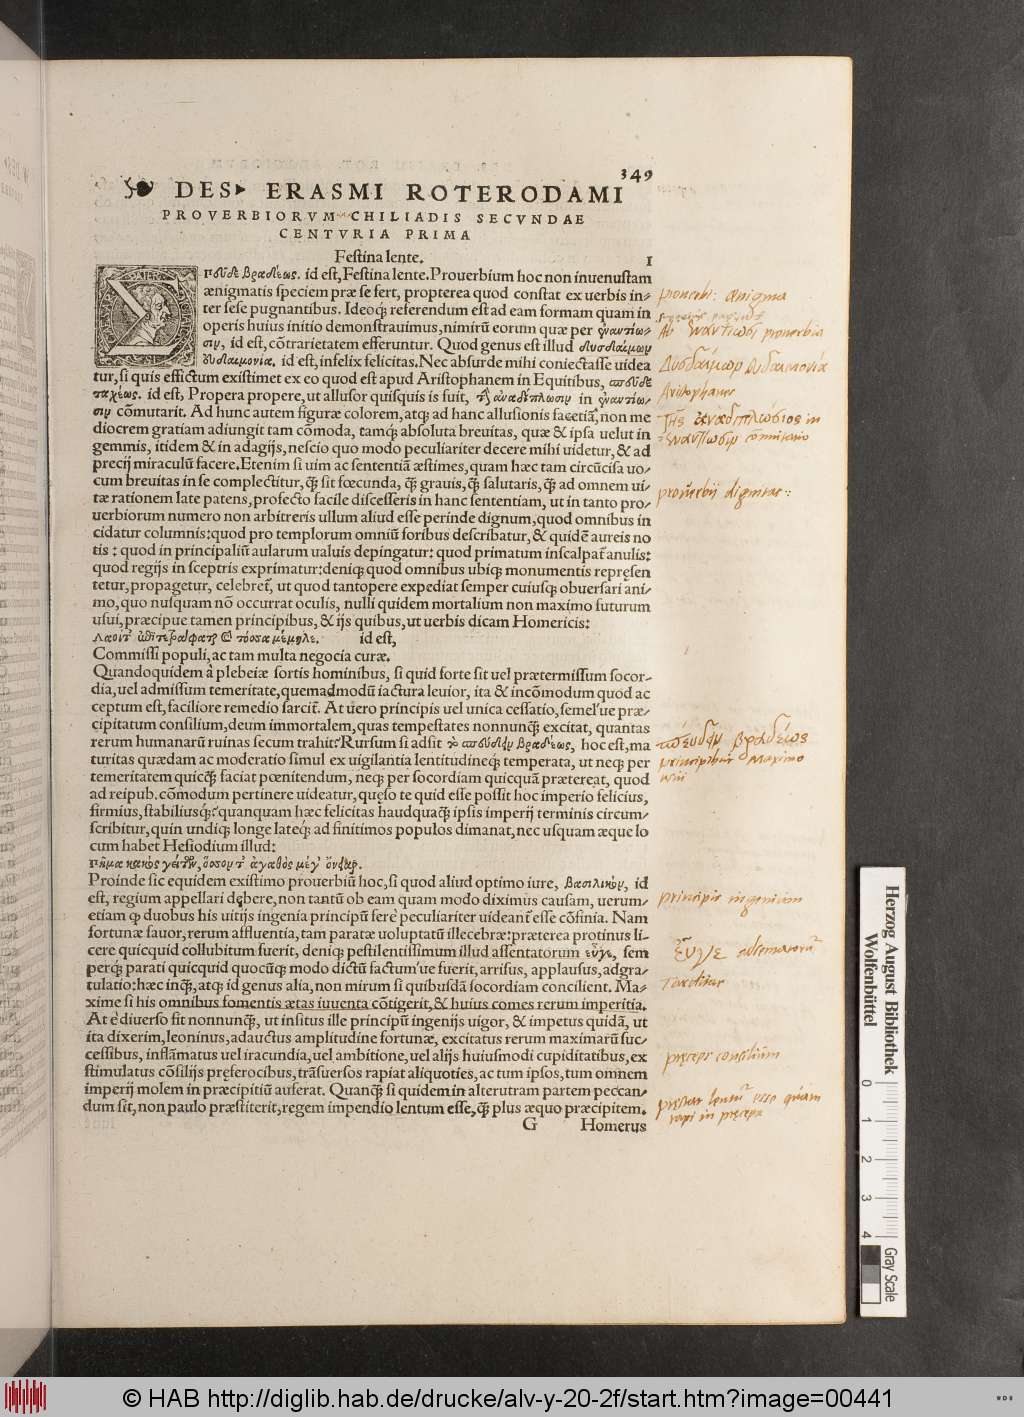 349
DES▸ ERASMI ROTERODAMI
PROVERBIORVM CHILIADIS SECVNDAE
CENTVRIA PRIMA
Festina lente. I
Σπεῦδε βραδέως. id est, Festina lente. Prouerbium hoc non inuenustam
ænigmatis speciem præ se fert, propterea quod constat ex uerbis in-
ter sese pugnantibus. Ideoq́ʒ referendum est ad eam formam quam in
operis huius initio demonstrauimus, nimirũ eorum quæ per ἐναντίω-
σιν, id est, cõtrarietatem efferuntur. Quod genus est illud δυσδαίμων
εὐδαιμονία. id est, infelix felicitas. Nec absurde mihi coniectasse uidea
tur, si quis effictum existimet ex eo quod est apud Aristophanem in Equitibus, σπεῦδε
ταχέως. id est, Propera propere, ut allusor quisquis is fuit, τὴν ἀναδίπλωσιν in ἐναντίω-
σιν cõmutarit. Ad hunc autem figuræ colorem, atqʒ ad hanc allusionis facetiã, non me
diocrem gratiam adiungit tam cõmoda, tamqʒ absoluta breuitas, quæ & ipsa uelut in
gemmis, itidem & in adagijs, nescio quo modo peculiariter decere mihi uidetur, & ad
precij miraculũ facere. Etenim si uim ac sententiã æstimes, quam hæc tam circũcisa uo-
cum breuitas in se complectitur, q̃ʒ sit fœcunda, q̃ʒ grauis, q̃ʒ salutaris, q̃ʒ ad omnem ui-
tæ rationem late patens, profecto facile discesseris in hanc sententiam, ut in tanto pro-
uerbiorum numero non arbitreris ullum aliud esse perinde dignum, quod omnibus in
cidatur columnis: quod pro templorum omniũ foribus describatur, & quidẽ aureis no
tis: quod in principaliũ aularum ualuis depingatur: quod primatum insculpat̃ anulis:
quod regijs in sceptris exprimatur: deniqʒ quod omnibus ubiqʒ monumentis represen
tetur, propagetur, celebret̃, ut quod tantopere expediat semper cuiusqʒ obuersari ani-
mo, quo nusquam nõ occurrat oculis, nulli quidem mortalium non maximo futurum
usui, præcipue tamen principibus, & ijs quibus, ut uerbis dicam Homericis:
Λαοί τ' ἐπιτετράφαται καὶ τόσσα μέμηλε. id est,
Commissi populi, ac tam multa negocia curæ.
Quandoquidem à plebeiæ sortis hominibus, si quid forte sit uel prætermissum socor-
dia, uel admissum temeritate, quemadmodũ iactura leuior, ita & incõmodum quod ac
ceptum est, faciliore remedio sarcit̃. At uero principis uel unica cessatio, semel'ue præ-
cipitatum consilium, deum immortalem, quas tempestates nonnunq̃ʒ excitat, quantas
rerum humanarũ ruinas secum trahit? Rursum si adsit τὸ σπεύδειν βραδέως, hoc est, ma
turitas quædam ac moderatio simul ex uigilantia lentitudineqʒ temperata, ut neqʒ per
temeritatem quicq̃ʒ faciat pœnitendum, neqʒ per socordiam quicquã prætereat, quod
ad reipub. cõmodum pertinere uideatur, quęso te quid esse possit hoc imperio felicius,
firmius, stabiliusq́ʒ? quanquam hæc felicitas haudquaq̃ʒ ipsis imperij terminis circum-
scribitur, quin undiqʒ longe lateqʒ ad finitimos populos dimanat, nec usquam æque lo
cum habet Hesiodium illud:
Πῆμα κακὸς γείτων, ὅσσον τ' ἀγαθὸς μέγ' ὄνειαρ.
Proinde sic equidem existimo prouerbiũ hoc, si quod aliud optimo iure, βασιλικὸν, id
est, regium appellari debere, non tantũ ob eam quam modo diximus causam, uerum-
etiam ꝙ duobus his uitijs ingenia principũ ferè peculiariter uideant̃ esse cõfinia. Nam
fortunæ fauor, rerum affluentia, tam paratæ uoluptatũ illecebræ: præterea protinus li-
cere quicquid collubitum fuerit, deniqʒ pestilentissimum illud assentatorum εὖγε, sem
perqʒ parati quicquid quocũqʒ modo dictũ factum'ue fuerit, arrisus, applausus, adgra-
tulatio: hæc inq̃ʒ, atqʒ id genus alia, non mirum si quibusdã socordiam concilient. Ma-
xime si his omnibus fomentis ætas iuuenta cõtigerit, & huius comes rerum imperitia.
At è diuerso fit nonnunq̃ʒ, ut insitus ille principũ ingenijs uigor, & impetus quidã, ut
ita dixerim, leoninus, adauctus amplitudine fortunæ, excitatus rerum maximarũ suc-
cessibus, inflãmatus uel iracundia, uel ambitione, uel alijs huiusmodi cupiditatibus, ex
stimulatus cõsilijs pręferocibus, trãsuersos rapiat aliquoties, ac tum ipsos, tum omnem
imperij molem in præcipitiũ auferat. Quanq̃ʒ si quidem in alterutram partem peccan-
dum sit, non paulo præstiterit, regem impendio lentum esse, q̃ʒ plus æquo præcipitem.
G Homerus
ænigma
ἐναντίωσι prouerbia
Δυσδαίμωρ ευδαιμονία
Aristophanes
Τῆς ἀναδιπλώσιος in
ἐναντίωσιν commutatio
prouerbij dignitas:
σπεύδειν βραδέως
principibus maximo
usui
principis ingenium
εὖγε adsentatorũ
pręceps consilium
pręstat lentũ esse quàm
rapi in pręceps
Herzog August Bibliothek
Wolfenbüttel
0 1 2 3 4
Gray Scale
© HAB http://diglib.hab.de/drucke/alv-y-20-2f/start.htm?image=00441